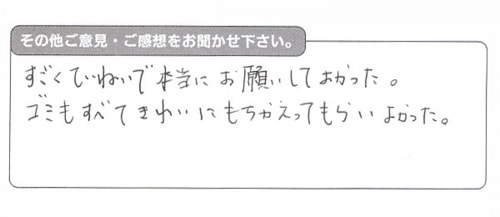 その他ご意見・ご感想をお聞かせ下さい。
すごくていねいで本当にお願いしてよかった。
ゴミもすべてきれいにもちかえってもらいよかった。